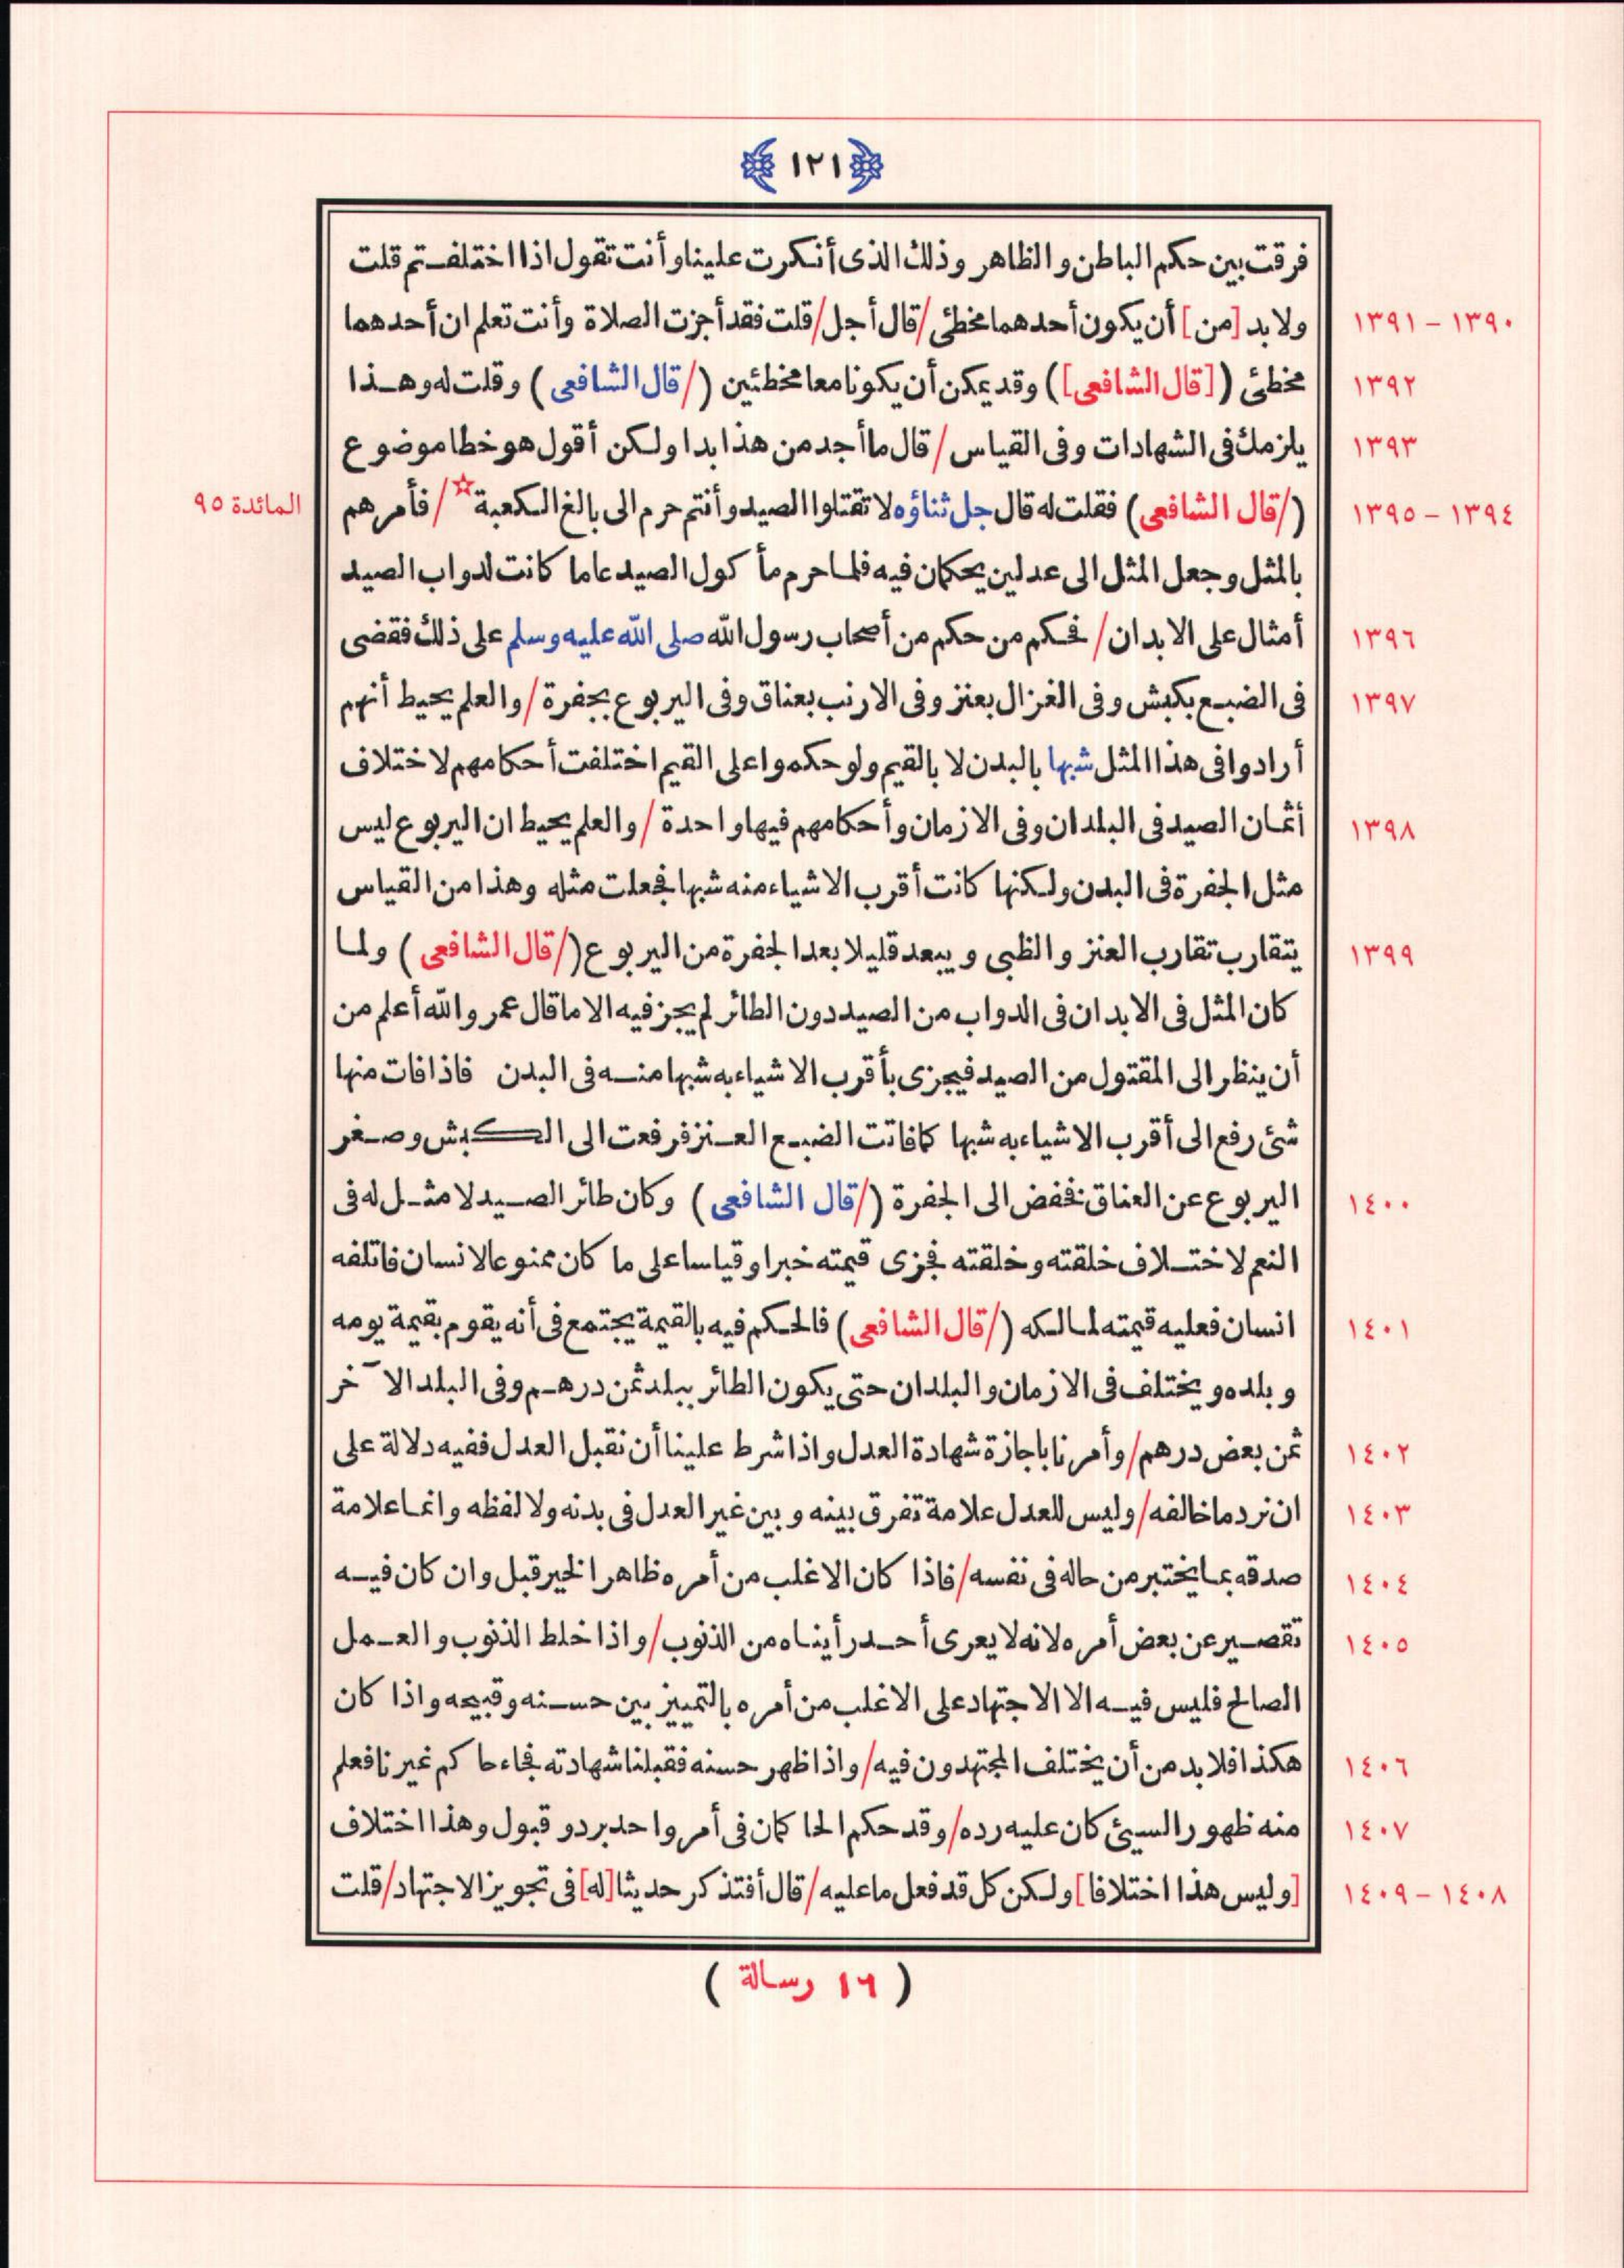 ١٢١
فرقت بين حكم الباطن والظاهر وذلك الذى أنكرت علينا وأنت تقول اذا اختلفتم قلت
١٣٩٠ - ١٣٩١ ولا بد [من] أن يكون أحدهما مخطئ / قال أجل / قلت فقد أجزت الصلاة وأنت تعلم ان أحدهما
١٣٩٢ مخطئ ([قال الشافعى]) وقد يمكن أن يكونا معا مخطئين (/ قال الشافعى) وقلت له وهذا
١٣٩٣ يلزمك فى الشهادات وفى القياس / قال ما أجد من هذا بدا ولكن أقول هو خطا موضوع
١٣٩٤ - ١٣٩٥ (/ قال الشافعى) فقلت له قال جل ثناؤه لا تقتلوا الصيد وأنتم حرم الى بالغ الكعبة ☆ / فأمرهم المائدة ٩٥
بالمثل وجعل المثل الى عدلين يحكمان فيه فلما حرم مأكول الصيد عاما كانت لدواب الصيد
١٣٩٦ أمثال على الابدان / فحكم من حكم من أصحاب رسول الله صلى الله عليه وسلم على ذلك فقضى
١٣٩٧ فى الضبع بكبش وفى الغزال بعنز وفى الارنب بعناق وفى اليربوع بجفرة / والعلم يحيط أنهم
أرادوا فى هذا المثل شبها بالبدن لا بالقيم ولو حكموا على القيم اختلفت أحكامهم لاختلاف
١٣٩٨ أثمان الصيد فى البلدان وفى الازمان وأحكامهم فيها واحدة / والعلم يحيط ان اليربوع ليس
مثل الجفرة فى البدن ولكنها كانت أقرب الاشياء منه شبها فجعلت مثله وهذا من القياس
١٣٩٩ يتقارب تقارب العنز والظبى ويبعد قليلا بعد الجفرة من اليربوع (/ قال الشافعى) ولما
كان المثل فى الابدان فى الدواب من الصيد دون الطائر لم يجز فيه الا ما قال عمر والله أعلم من
أن ينظر الى المقتول من الصيد فيجزى بأقرب الاشياء به شبها منه فى البدن فاذا فات منها
شئ رفع الى أقرب الاشياء به شبها كما فاتت الضبع العنز فرفعت الى الكبش وصغر
١٤٠٠ اليربوع عن العناق فخفض الى الجفرة (/ قال الشافعى) وكان طائر الصيد لا مثل له فى
النعم لاختلاف خلقته وخلقته فجزى قيمته خبرا وقياسا على ما كان ممنوعا لانسان فاتلفه
١٤٠١ انسان فعليه قيمته لمالكه (/ قال الشافعى) فالحكم فيه بالقيمة يجتمع فى أنه يقوم بقيمة يومه
وبلده ويختلف فى الازمان والبلدان حتى يكون الطائر ببلد ثمن درهم وفى البلد الآخر
١٤٠٢ ثمن بعض درهم / وأمرنا باجازة شهادة العدل واذا شرط علينا أن نقبل العدل ففيه دلالة على
١٤٠٣ ان نرد ما خالفه / وليس للعدل علامة تفرق بينه وبين غير العدل فى بدنه ولا لفظه وانما علامة
١٤٠٤ صدقه بما يختبر من حاله فى نفسه / فاذا كان الاغلب من أمره ظاهر الخير قبل وان كان فيه
١٤٠٥ تقصير عن بعض أمره لانه لا يعرى أحد رأيناه من الذنوب / واذا خلط الذنوب والعمل
الصالح فليس فيه الا الاجتهاد على الاغلب من أمره بالتمييز بين حسنه وقبيحه واذا كان
١٤٠٦ هكذا فلا بد من أن يختلف المجتهدون فيه / واذا ظهر حسنه فقبلنا شهادته فجاء حاكم غيرنا فعلم
١٤٠٧ منه ظهور السيئ كان عليه رده / وقد حكم الحاكمان فى أمر واحد برد وقبول وهذا اختلاف
١٤٠٨ - ١٤٠٩ [وليس هذا اختلافا] ولكن كل قد فعل ما عليه / قال أفتذكر حديثا [له] فى تجويز الاجتهاد / قلت
(١٦ رسالة)